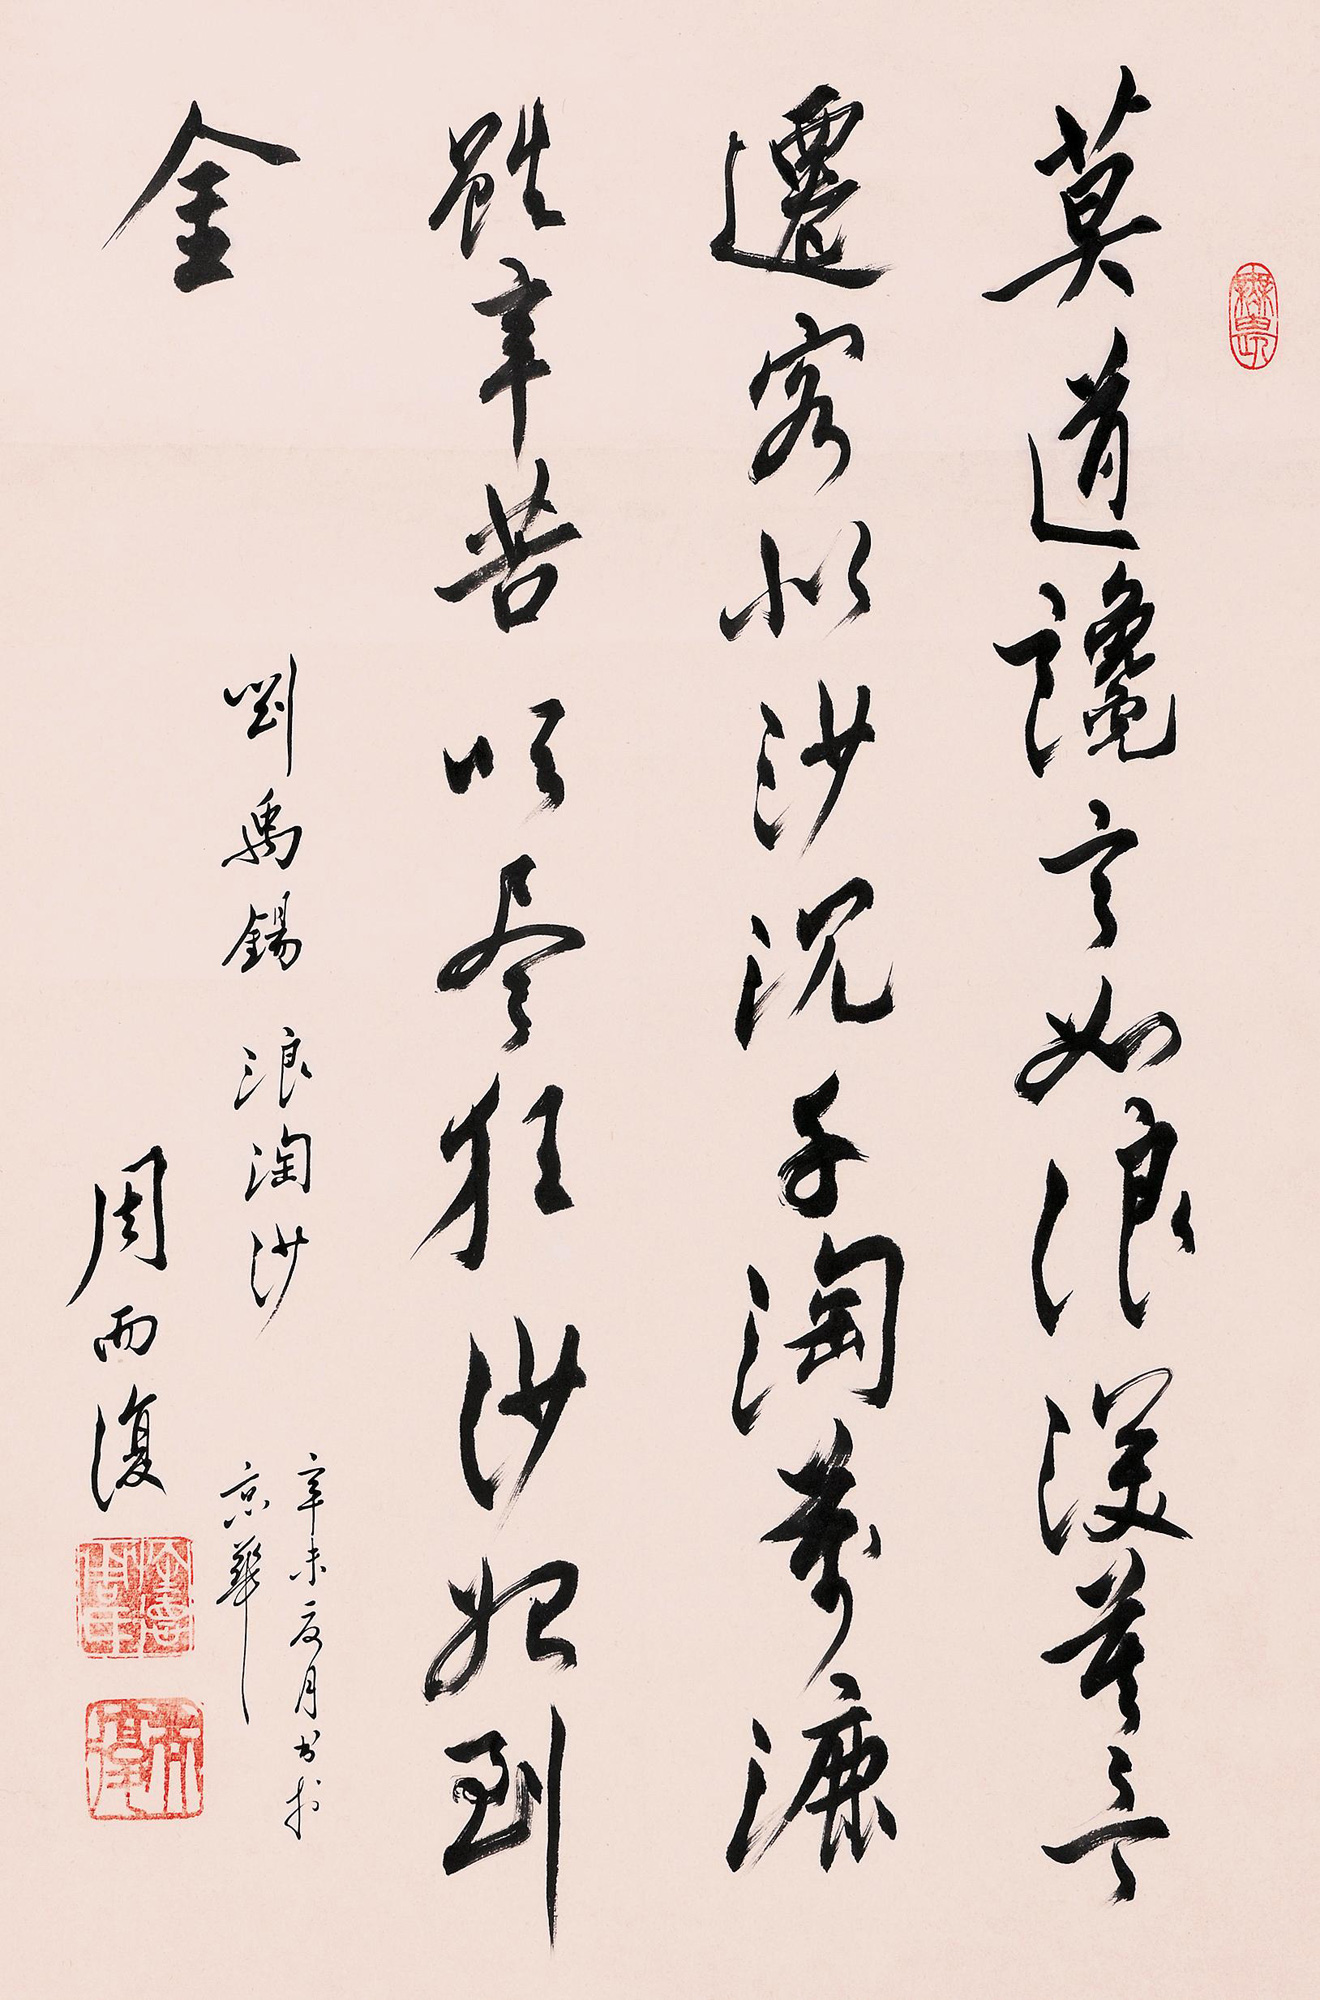 莫道讒言如浪深莫言
遷客似沙沉千淘萬漉
雖辛苦吹尽狂沙始到
金
劉禹錫 浪淘沙
辛未夏月书於
京華
周而復